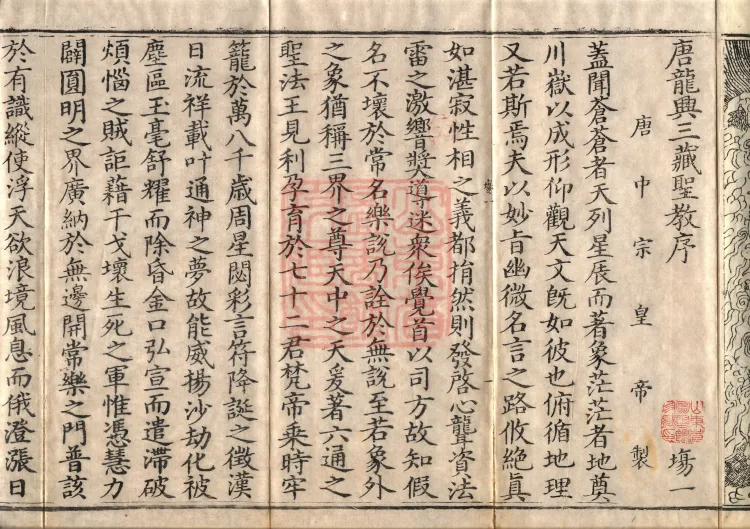 唐龍興三藏聖教序 塲一
唐中宗皇帝製
蓋聞蒼蒼者天列星辰而著象茫茫者地奠
川嶽以成形仰觀天文旣如彼也俯循地理
又若斯焉夫以妙旨幽微名言之路攸絶眞
如湛寂性相之義都捐然則發啓心聾資法
雷之激響奬導迷衆俟覺首以司方故知假
名不壞於常名樂說乃詮於無說至若象外
之象猶稱三界之尊天中之天爰著六通之
聖法王見利孕育於七十二君梵帝乘時牢
籠於萬八千歲周星閟彩言符降誕之徵漢
日流祥載叶通神之夢故能威揚沙劫化被
塵區玉毫舒耀而除昏金口弘宣而遣滯破
煩惱之賊詎藉干戈壞生死之軍惟憑慧力
闢圓明之界廣納於無邊開常樂之門普該
於有識縱使浮天欲浪境風息而俄澄漲日